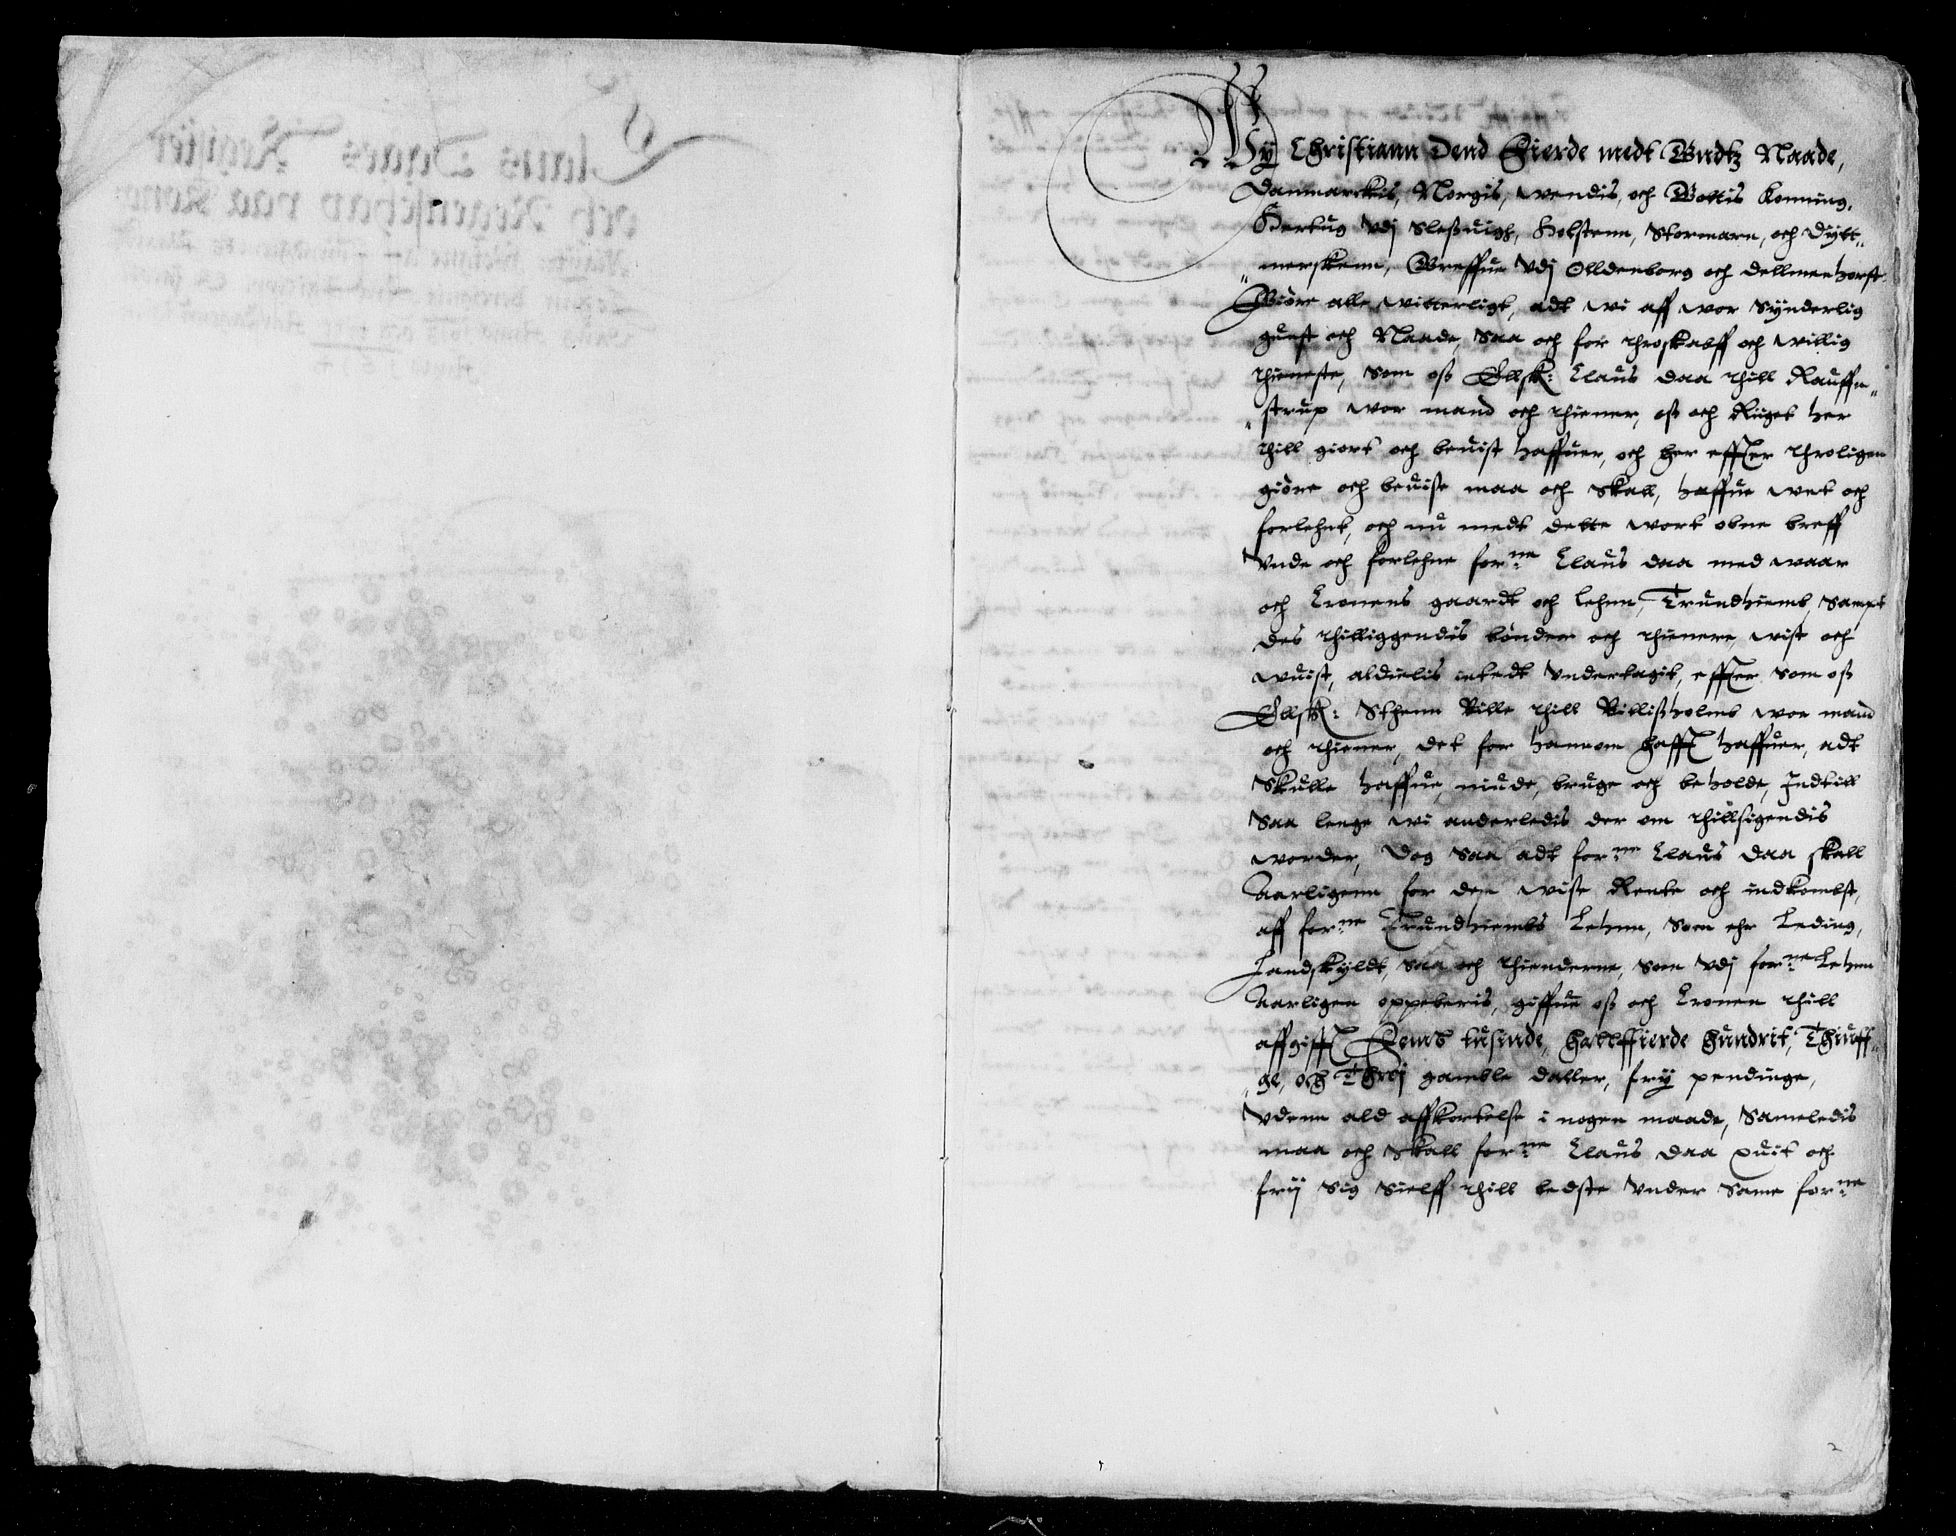 Wy Christiann Dend Fierde medt Gudtz Naade,
Danmarckis, Norgis, Wendis, och Gottis Konning,
Hertug Vdj Sleßuigh, Holstenn, Stormarn, och Dytt„
„merskenn, Greffue Vdj Olldenborg och Dellmenhorst.
Giöre alle witterligt, adt wi aff wor Synderlig
gunst och Naade, Saa och for throskabff och willig
thieneste, Som oß Ellsk: Claus Daa thill Rauffn„
„strup wor mand och thiener, oß och Riiget her
thill giort och beuist haffuer, och her effter throligen
giöre och beuise maa och Skall, haffue wnt och
forlehnt, och nu medt dette wort obne breff
Vnde och forlehne for:ne Claus Daa med waar
och Cronens gaardt och lehnn, Trundhiemb, Sampt
des thilliggendis bönder och thienere, wist och
wuist, aldielis intedt Vndertagit, effter Som oß
Ellsk: Sthenn Bille thill Billißholmb wor mand
och thiener, det for hannom hafft haffuer, adt
Skulle haffue, niude, bruge och beholde, Indtill
Saa lenge wi anderledis der om thillsigendis
worder, Dog Saa adt for:ne Claus Daa skall
Aarligenn for den wise Rente och indkombst,
aff for:ne Trundhiembs Lehnn, Som ehr Leding,
Landskyldt, Saa och thienderne, Som Vdj for:ne Lehnn
Aarligen oppeberis, giffue oß och Cronen thill
affgifft Femb tusinde, hallffierde hundrit, Thiuff„
„ge, och Threj gamble daller, frij pendinge,
Vdenn ald affkortelse i nogen maade, Sameledis
maa och Skall for:ne Claus Daa quit och
frij Sig Sielff thill bedste Vnder Same for:ne
2